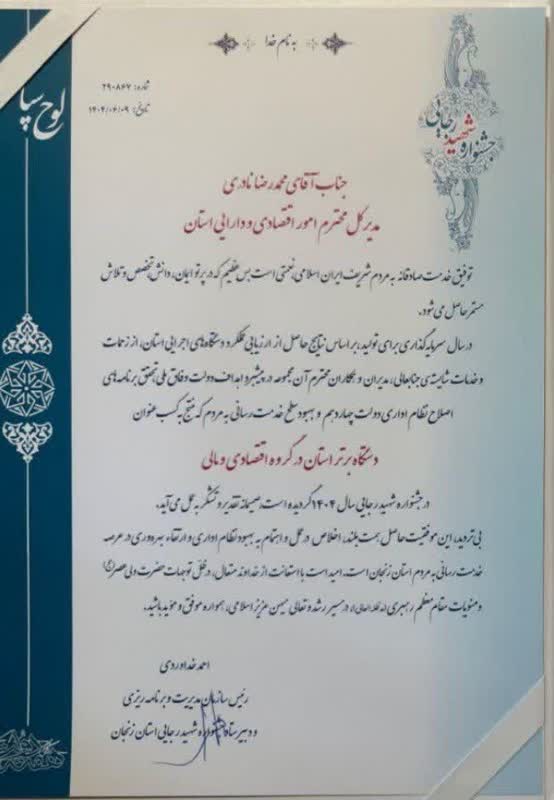 به نام خدا
لوح سپا
شماره: ۲۹۰۸۶۷
تاریخ: ۱۴۰۴/۰۶/۰۹
جشنواره شهید رجایی
جناب آقای محمدرضا نادری
مدیرکل محترم امور اقتصادی و دارایی استان
توفیق خدمت صادقانه به مردم شریف ایران اسلامی، نعمتی است بس عظیم که در پرتو ایمان، دانش، تخصص و تلاش
مستمر حاصل می‌شود.
در سال سرمایه‌گذاری برای تولید، بر اساس نتایج حاصل از ارزیابی عملکرد دستگاه‌های اجرایی استان، از زحمات
و خدمات شایسته‌ی جنابعالی، مدیران و همکاران محترم آن مجموعه در پیشبرد اهداف دولت وفاق ملی، تحقق برنامه‌های
اصلاح نظام اداری دولت چهاردهم و بهبود سطح خدمت رسانی به مردم که منتج به کسب عنوان
دستگاه برتر استان در گروه اقتصادی و مالی
در جشنواره شهید رجایی سال ۱۴۰۴ گردیده است، صمیمانه تقدیر و تشکر به عمل می‌آید.
بی‌تردید، این موفقیت حاصل همت بلند، اخلاص در عمل و اهتمام به بهبود نظام اداری و ارتقاء بهره‌وری در عرصه
خدمت رسانی به مردم استان زنجان است. امید است با استعانت از خداوند متعال، در ظل توجهات حضرت ولی عصر(عج)
و منویات مقام معظم رهبری (مدظله‌العالی) در مسیر رشد و تعالی میهن عزیز اسلامی، همواره موفق و مؤید باشید.
احمد خداوردی
رئیس سازمان مدیریت و برنامه ریزی
و دبیر ستاد جشنواره شهید رجایی استان زنجان